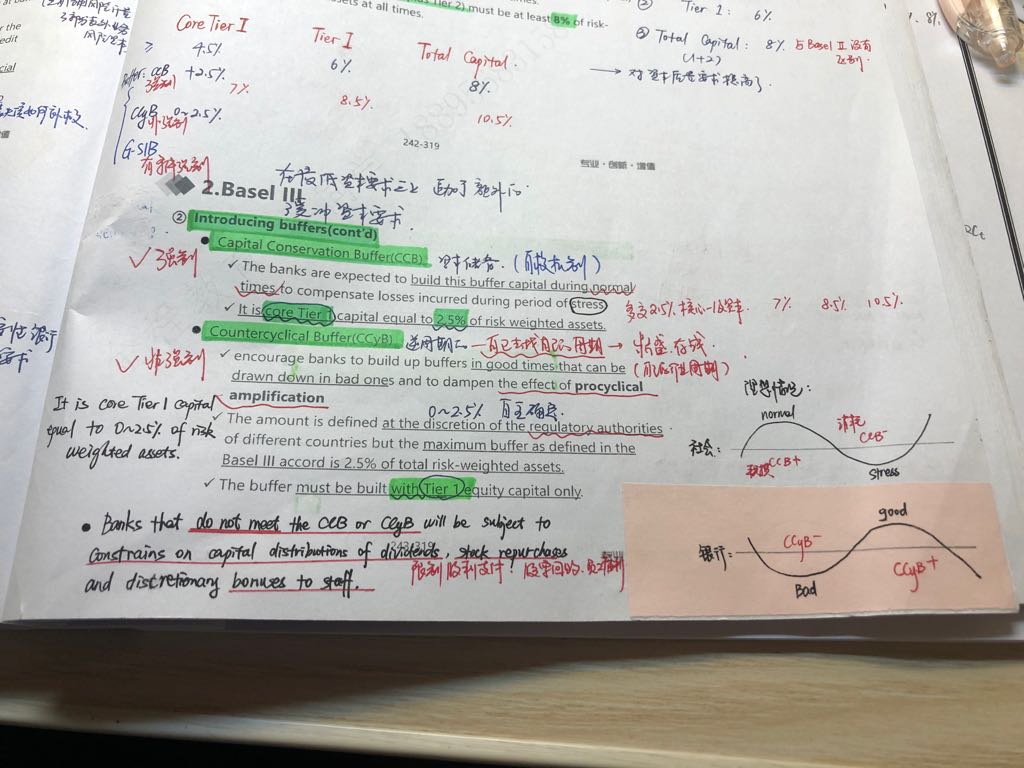 Tier 2) must be at least 8% of risk-
assets at all times.
Core Tier I
Tier I
Total Capital.
≥ 4.5%
6%
8%
Buffer: CCB +2.5%
强制
7%
8.5%
10.5%
CCyB 0~2.5%
非强制
G-SIB
有条件强制
242-319
专业·创新·增值
② Tier 1: 6%
③ Total Capital: 8% 与Basel II 没有
区别
(1+2)
→ 对资本质量要求提高了
1. 8%
the
edit
cial
2.Basel III
在最低资本要求之上 追加了额外的
缓冲资本要求.
② Introducing buffers(cont'd)
● Capital Conservation Buffer(CCB)
✓强制
✓ The banks are expected to build this buffer capital during normal
times to compensate losses incurred during period of stress
✓ It is core Tier 1 capital equal to 2.5% of risk weighted assets.
多交2.5% 核心一级资本. 7% 8.5% 10.5%
● Countercyclical Buffer(CCyB)
逆周期
✓非强制
✓ encourage banks to build up buffers in good times that can be
drawn down in bad ones and to dampen the effect of procyclical
amplification
0~2.5% 自主确定.
✓ The amount is defined at the discretion of the regulatory authorities
of different countries but the maximum buffer as defined in the
Basel III accord is 2.5% of total risk-weighted assets.
✓ The buffer must be built with Tier 1 equity capital only.
It is core Tier 1 capital
equal to 0~2.5% of risk
weighted assets.
理想情况:
normal
社会:
消耗
CCB-
CCB+
stress
● Banks that do not meet the CCB or CCyB will be subject to
constrains on capital distributions of dividends, stock repurchases
and discretionary bonuses to staff.
242-319
限制股利支付. 股票回购. 员工福利
good
银行:
CCyB-
CCyB+
Bad